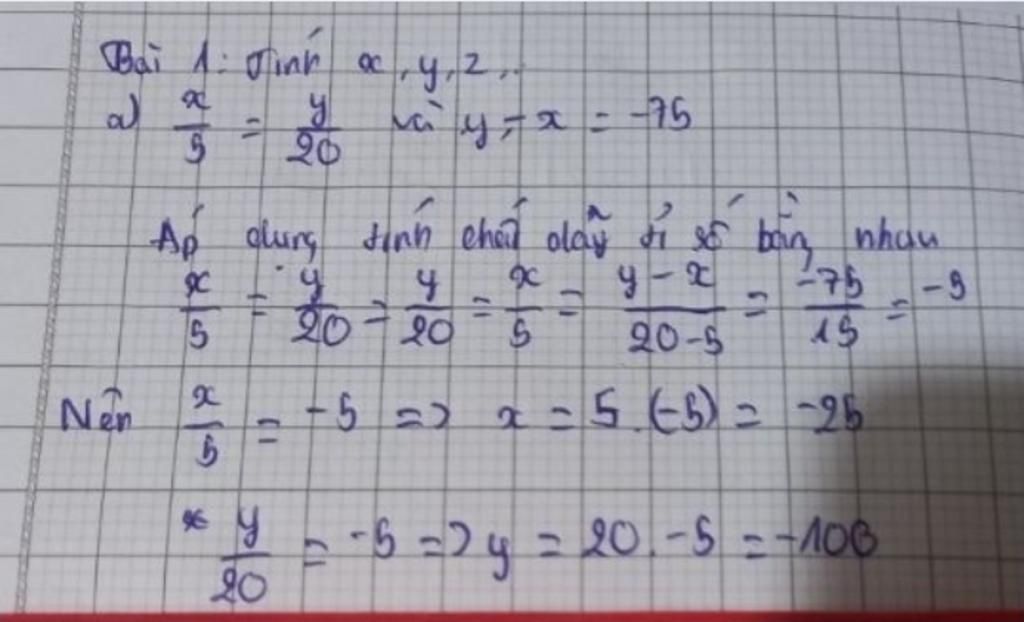 Bài 1: Tính x, y, z..
a) x/5 = y/20 và y - x = -75
Áp dụng tính chất dãy tỉ số bằng nhau
x/5 = y/20 = y/20 = x/5 = y - x/20 - 5 = -75/15 = -5
Nên x/5 = -5 => x = 5.(-5) = -25
* y/20 = -5 => y = 20.-5 = -100